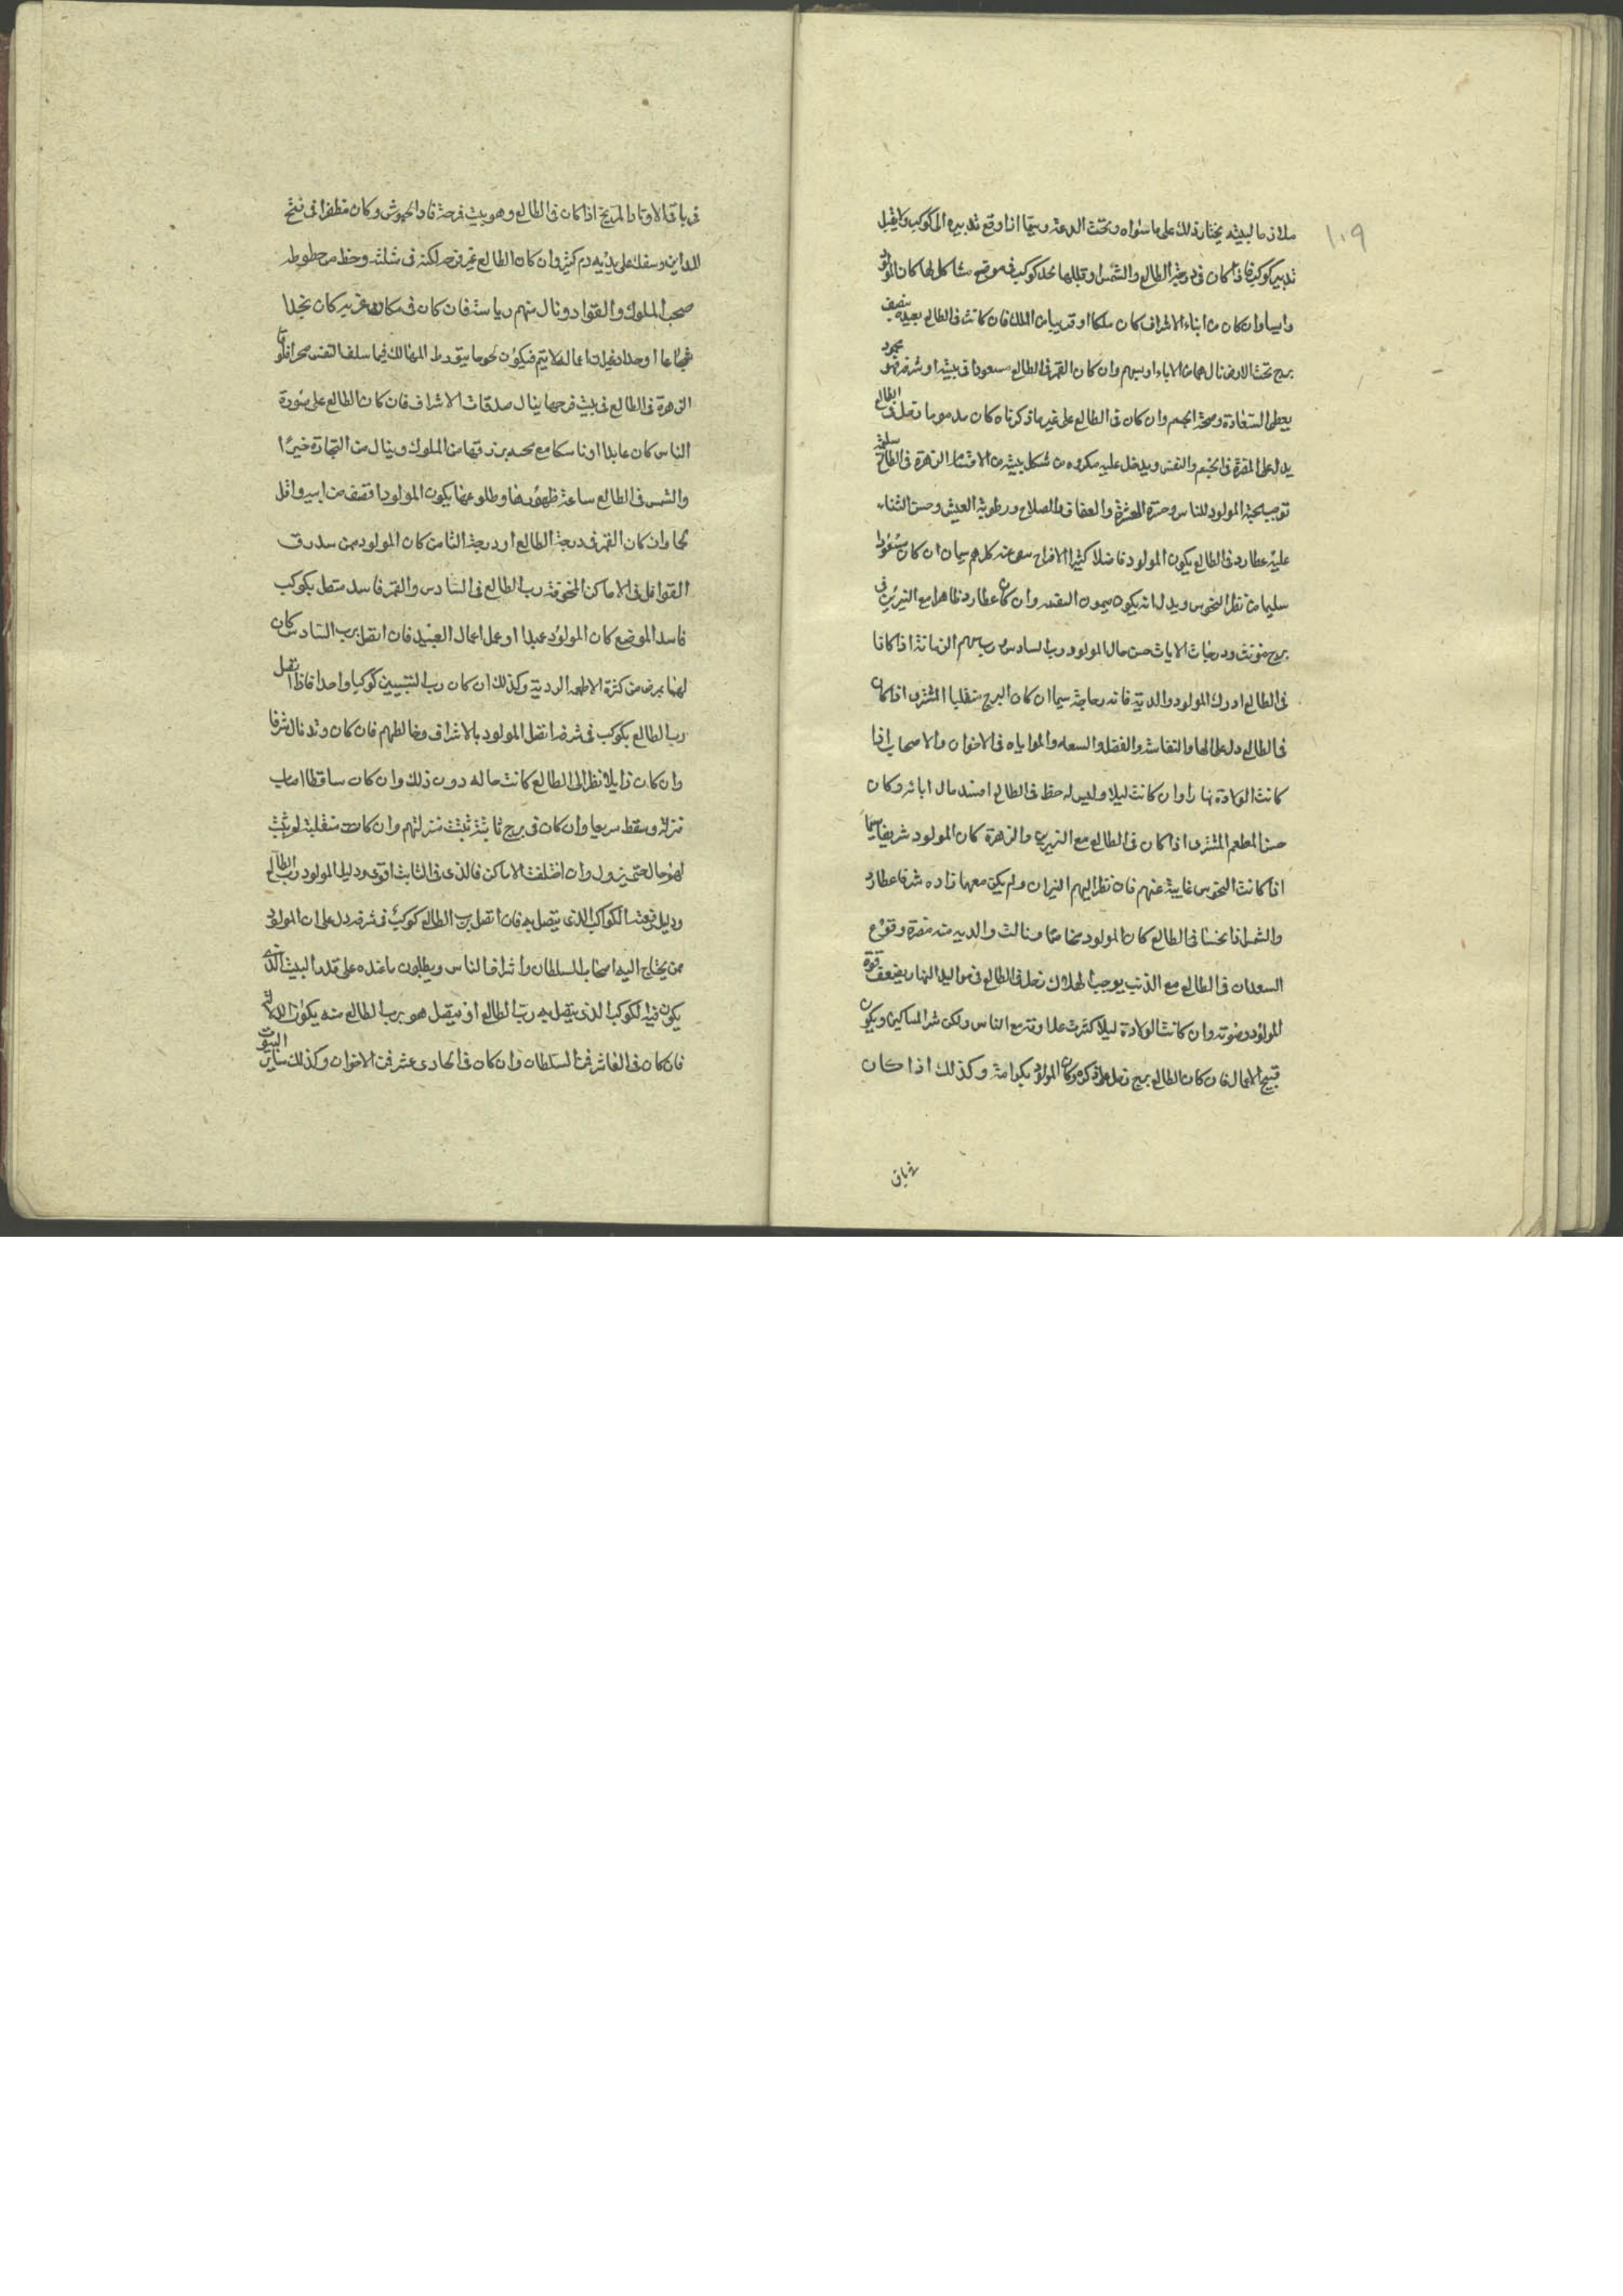 ١٠٩
ملازما لبيته يختار ذلك على ما سواه وتحت الدعة وسيما اذا وقع تدبيره الى كوكب ولا يقبل
تدبير كوكب فاذا كان في درجة الطالع والشمس وقبلها محل كوكب في موضع مشاكل لها كان المولود
رايسا وان كان من ابناء الاشراف كان ملكا او قريبا من الملك فان كانت في الطالع بعيدة بنصف
برج تحت الارض نال هما من الاباء او بسببهم وان كان القمر في الطالع مسعودا في بيته او شرفه فهو محمود
يعطى السعادة وصحة الجسم وان كان في الطالع على غير ما ذكرناه كان مذموما زحل في الطالع
يدل على المضرة في الجسم والنفس ويدخل عليه مكروه من شكل بيته من الافتشار الزهرة في الطالع سليمة
توجب محبة المولود للناس وحسن العشرة والعفاف والصلاح ورطوبة العيش وحسن الثناء
عليه عطارد في الطالع يكون المولود فاضلا كثير الافراح كلامهم سيما ان كان
سليما من نظر النحوس ويدل انه يكون ميمون وان كان عطارد ظاهرا مع النيرين في
برج مونث ودرجات الاناث حسن حال المولود ورب السادس ورب سهم الزمانة اذا كانا
في الطالع ادرك المولود والديه فاقه وحاجة سيما ان كان البرج منقلبا المشترى اذا كان
في الطالع دل على البها والنفاسة والفضل والسعة والمواياه في الاخوان والاصحاب اذا
كانت الولادة نهارا وان كانت ليلا وليس له حظ في الطالع افسد مال ابائه وكان
حسن المطعم المشترى اذا كان في الطالع مع النيرين والزهرة كان المولود شريفا سيما
اذا كانت النحوس غايبة عنهم فان نظر اليهم النيران ولم يكن معهما زاده شرفا عطارد
والشمس اذا نحسا في الطالع كان المولود مخاصما ونالت والديه منه مضرة وقوع
السعدان في الطالع مع الذنب يوجب الهلاك زحل في الطالع في مواليد النهار يضعف قوة
المولود وصوته وان كانت الولادة ليلا كثرت علله وفزع الناس وسكن شر المساكين ويكون
قبيح الاعمال فان كان الطالع برج زحل ذكره وكان المولود بكرامة وكذلك اذا كان
في باقي
في باقي الاوتاد المريخ اذا كان في الطالع وهو بيت فرحه قاد الجيوش وكان مظفرا في فتح
المداين وسفك على يديه دم كثير وان كان الطالع غير فرحه لكنه في مثلثه وحظ من حظوظه
صحب الملوك والقواد ونال منهم رياسة فان كان في مكان غريب كان نجدا
شجاعا اعماله لا يتم فيكون لحوحا يتورط المهالك فيما سلف النفس
الزهرة في الطالع في بيت فرحها ينال صدقات الاشراف فان كان الطالع على صورة
الناس كان عابدا او ناسكا مع محمد برزقها من الملوك وينال من التجارة خيرا
والشمس في الطالع ساعة ظهورها وطلوعها يكون المولود اقصف من ابيه واقل
نجحا وان كان القمر في درجة الطالع او درجة الثامن كان المولود ممن يبدرق
القوافل في الاماكن المخوفة رب الطالع في السادس والقمر فاسد متصل بكوكب
فاسد الموضع كان المولود عبدا او عمل اعمال العبيد فان اتصل برب السادس كان
لهذا يمرض من كثرة الاطعمة الردية وكذلك ان كان رب البيتين كوكبا واحدا فاذا اتصل
رب الطالع بكوكب في شرفه اتصل المولود بالاشراف وخالطهم فان كان وتد نال شرفا
وان كان زايلا نظر الى الطالع كانت حاله دون ذلك وان كان ساقطا اصاب
منزلة وسقط سريعا وان كان في برج ثابت ثبتت منزلتهم وان كانت منقلبة لم يثبت
لهم حال حتى يزول وان اختلفت الاماكن فالذي في الثابت اقوى ودليل المولود رب الطالع
ودليل رفعته الكواكب الذي يتصل به فان اتصل برب الطالع كوكب في شرفه دل على ان المولود
ممن يحتاج اليه اصحاب السلطان واشراف الناس ويطلبون ما عنده على قدر البيت الذي
يكون فيه الكوكب الذي يتصل به رب الطالع او يتصل هو برب الطالع منه يكون الدلالة
فان كان في العاشر فمن السلطان وان كان في الحادي عشر فمن الاخوان وكذلك ساير البيوت